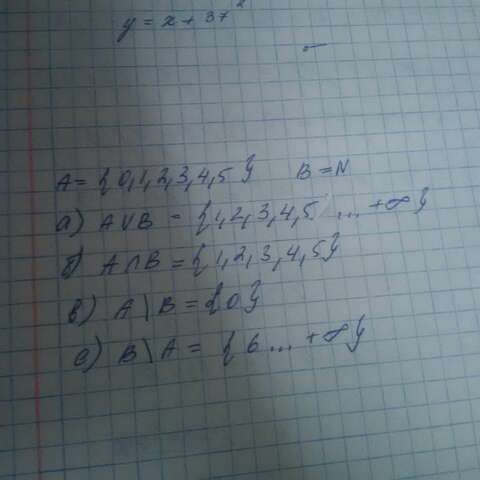 y = x + 37
A = {0,1,2,3,4,5} B = N
а) A∪B = {1,2,3,4,5 ... +∞}
б) A∩B = {1,2,3,4,5}
в) A\B = {0}
е) B\A = {6 ... +∞}